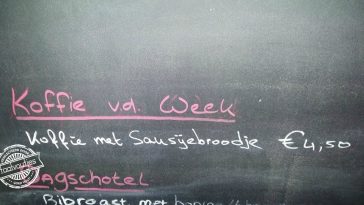 Koffie v.d. Week
Koffie met Sausijebroodje €4,50
Dagschotel
Ribroast met
taalvoutjes